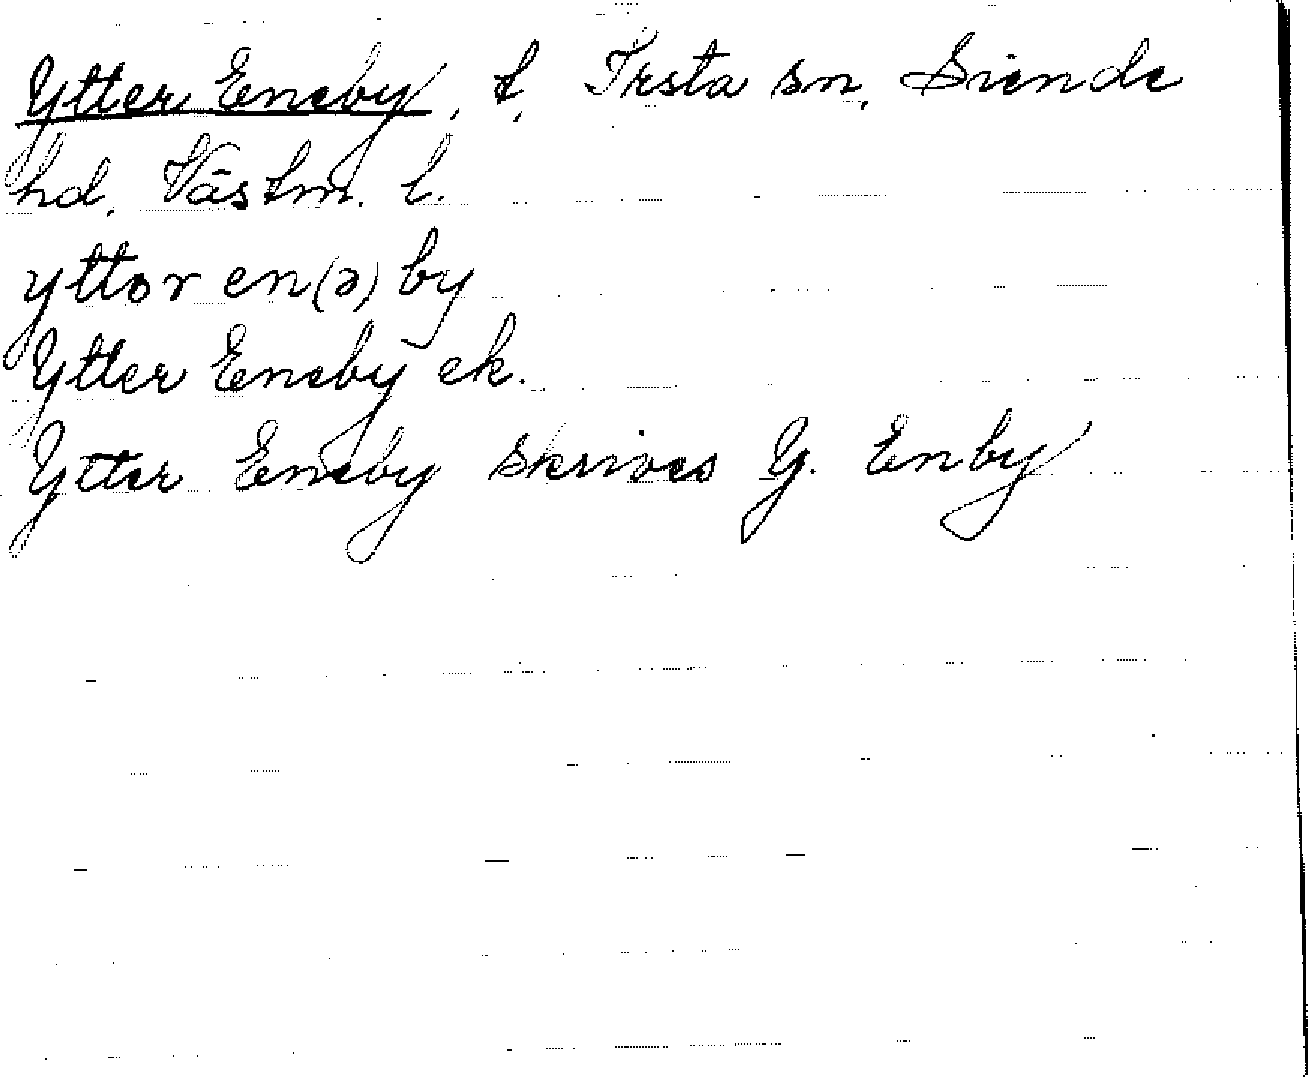 Ytter Eneby, t, Irsta sn, Siende
hd. Västm. l.
yttor en(ə)by
Ytter Eneby ek.
Ytter Eneby skrives Y. Enby